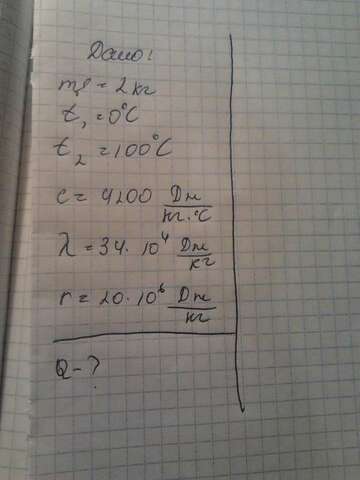 Дано:
m = 2кг
t₁ = 0°C
t₂ = 100°C
c = 4200 Дж/кг·°C
λ = 34·10⁴ Дж/кг
r = 20·10⁶ Дж/кг
Q - ?